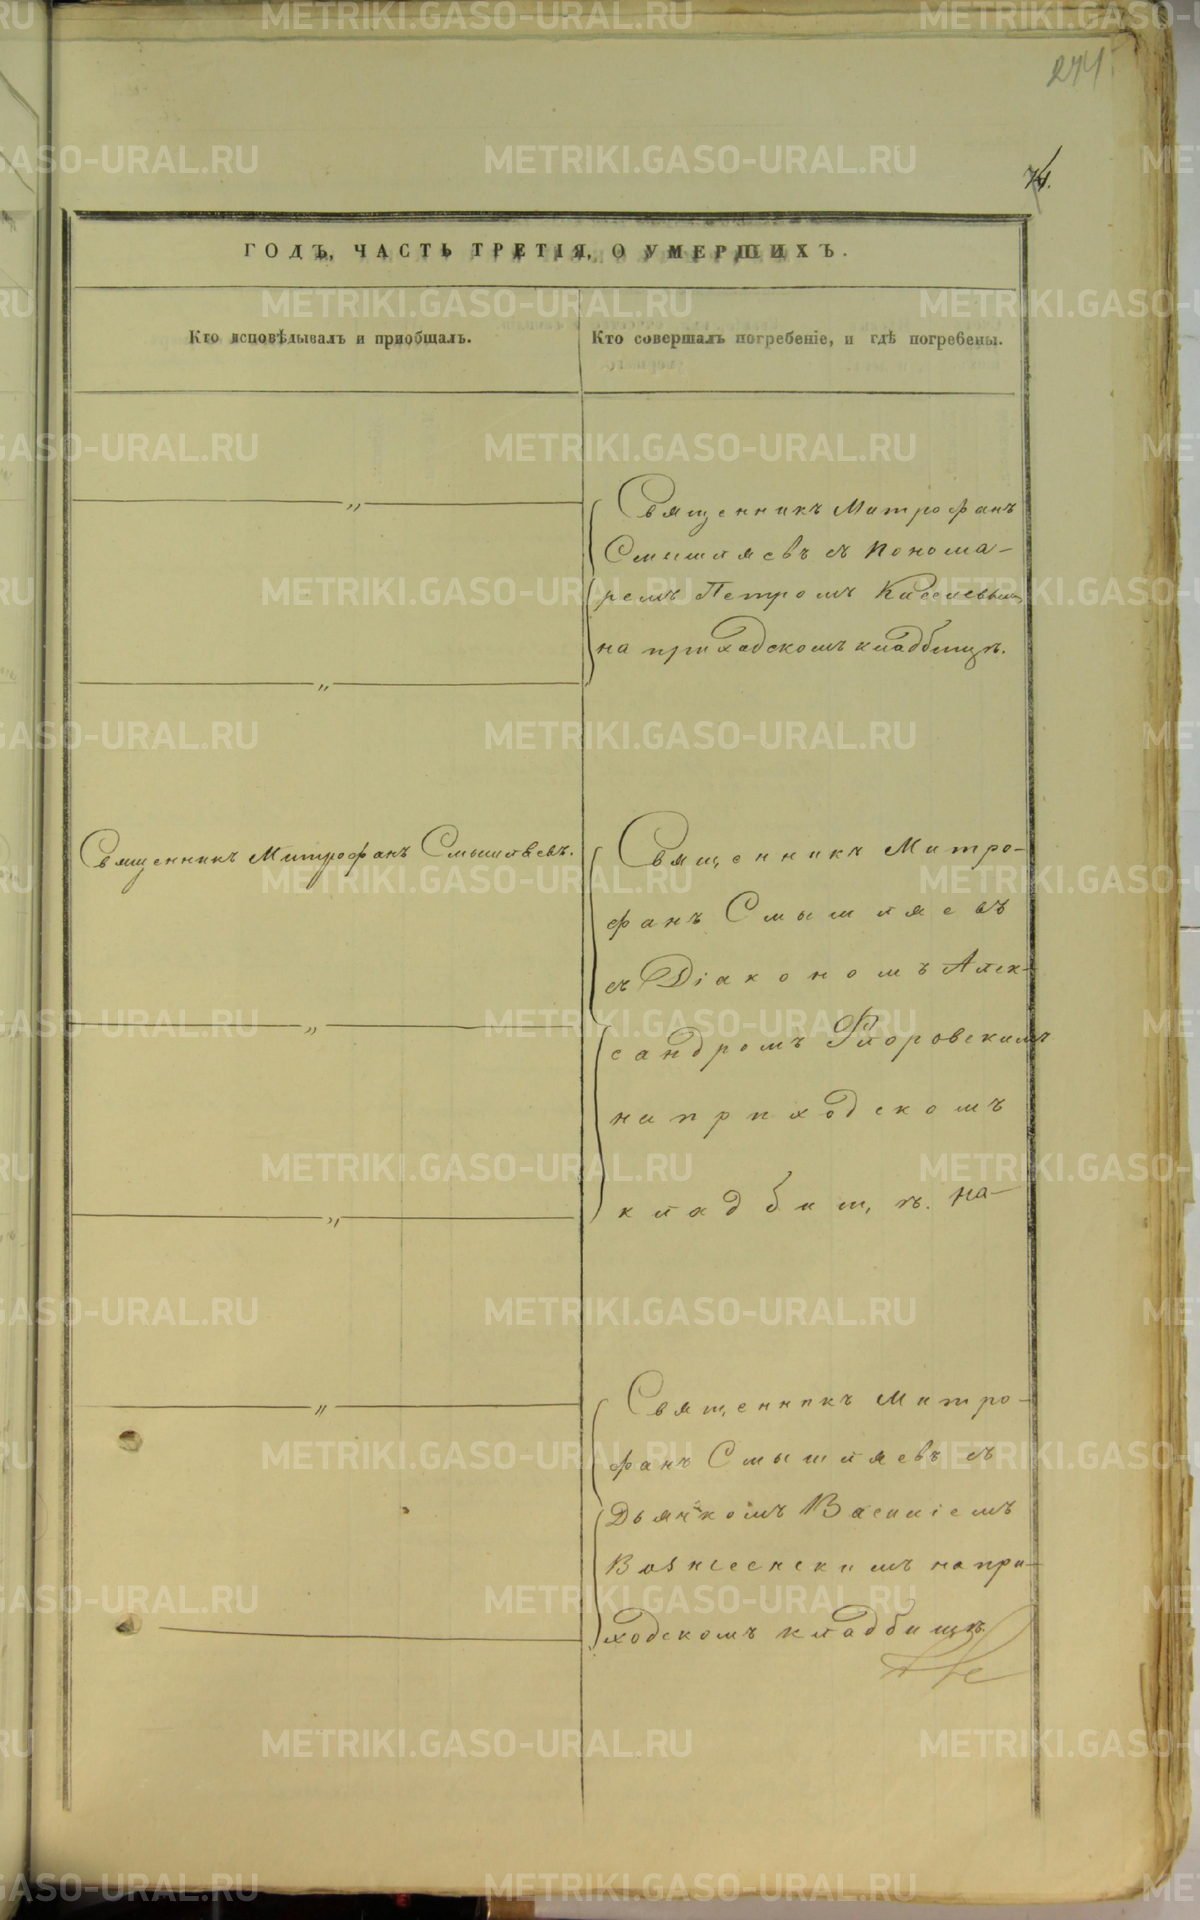 274
74.
ГОДЪ, ЧАСТЬ ТРЕТІЯ, О УМЕРШИХЪ.
Кто исповѣдывалъ и пріобщалъ.
Кто совершалъ погребеніе, и гдѣ погребены.
Священникъ Митрофанъ
Смышляевъ съ понома-
ремъ Петромъ Киселевымъ
на приходскомъ кладбищѣ.
Священникъ Митрофанъ Смышляевъ.
Священникъ Митро-
фанъ Смышляевъ
съ Діакономъ Алек-
сандромъ Флоровскимъ
на приходскомъ
кладбищѣ. на-
Священникъ Митро-
фанъ Смышляевъ съ
Дьячкомъ Василіемъ
Вознесенскимъ на при-
ходскомъ кладбищѣ
METRIKI.GASO-URAL.RU